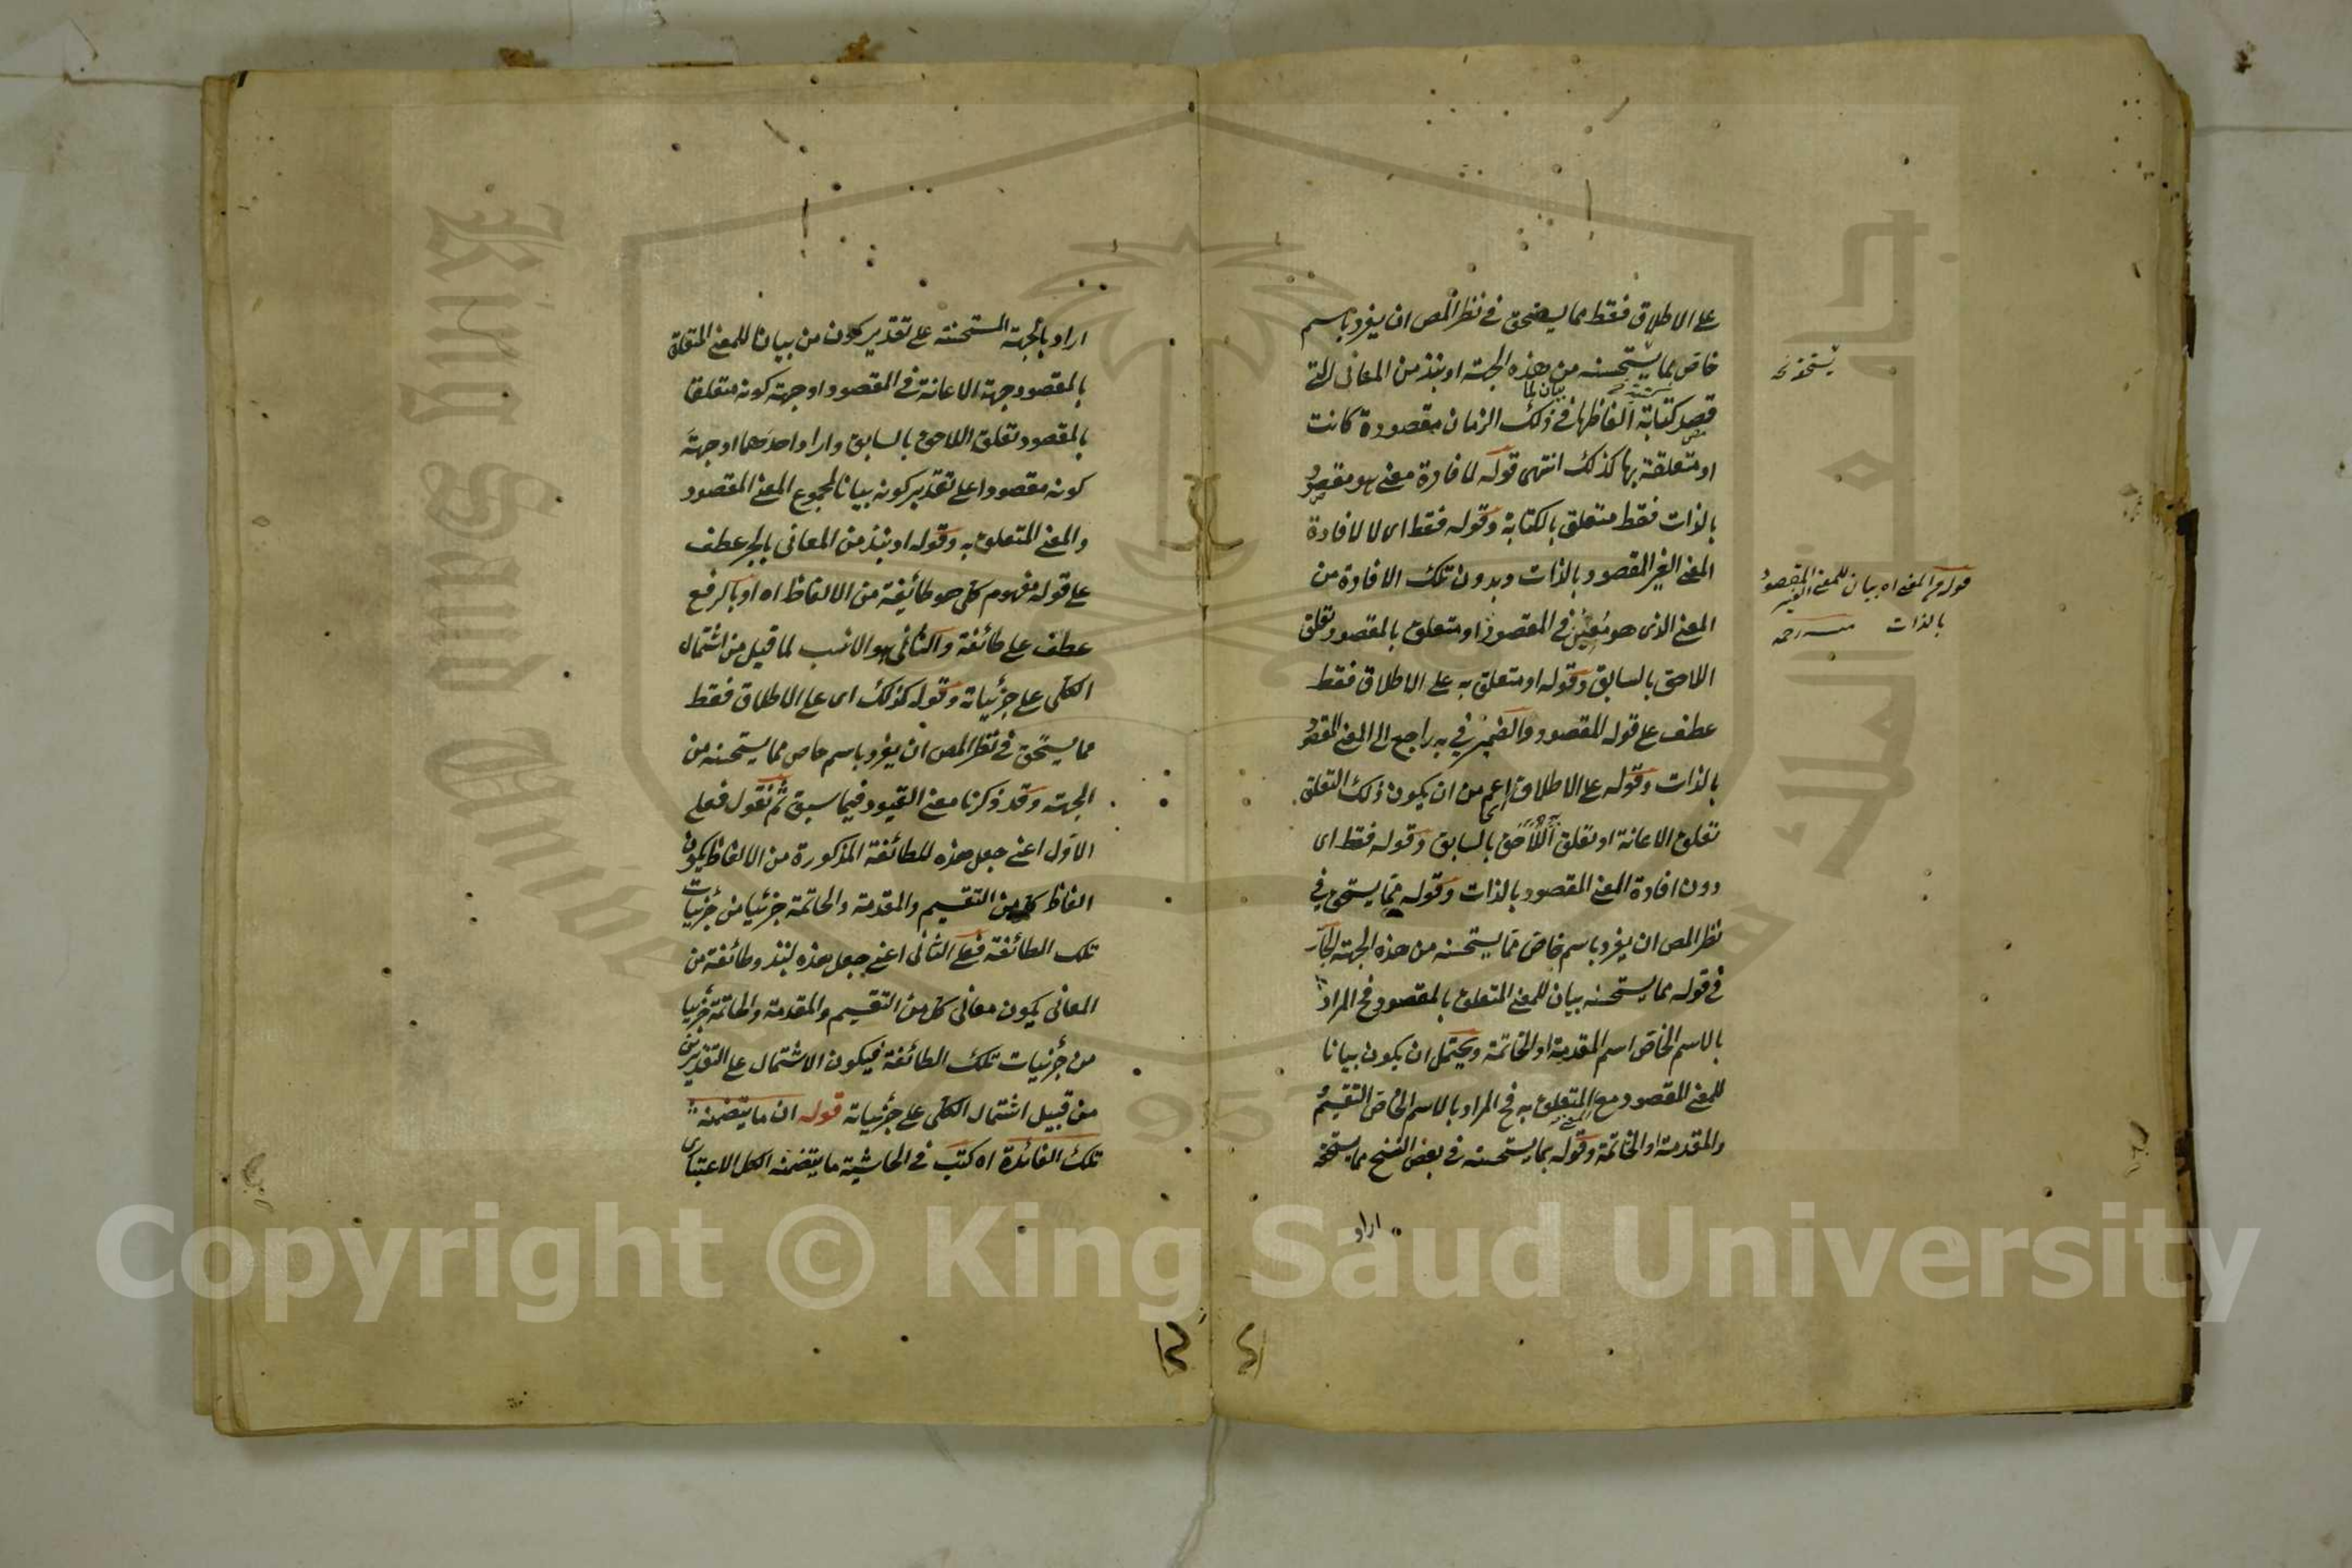 على الاطلاق فقط مما يستحق في نظر المص ان يفرد باسم
خاص مما يستحسنه من هذه الجهة او نبذ من المعانى التى
قصد كتابة الفاظها في ذلك الزمان مقصودة كانت
بيان لما
او متعلقة بها كذلك انتهى قوله لافادة معنى هو مقصود
بالذات فقط متعلق بالكتابة وقوله فقط اى لا لافادة
المعنى الغير المقصود بالذات وبدون تلك الافادة من
المعنى الذى هو معين في المقصود او متعلق بالمقصود تعلق
اللاحق بالسابق وقوله او متعلق به على الاطلاق فقط
عطف على قوله المقصود والضمير في به راجع الى المعنى المقصود
بالذات وقوله على الاطلاق اعم من ان يكون ذلك التعلق
تعلق الاعانة او تعلق اللاحق بالسابق وقوله فقط اى
دون افادة المعنى المقصود بالذات وقوله مما يستحق في
نظر المص ان يفرد باسم خاص مما يستحسنه من هذه الجهة الجار
في قوله مما يستحسنه بيان للمعنى المتعلق بالمقصود فح المراد
بالاسم الخاص اسم المقدمة او الخاتمة ويحتمل ان يكون بيانا
للمعنى المقصود مع المتعلق به فح المراد بالاسم الخاص التقسيم
والمقدمة او الخاتمة وقوله مما يستحسنه في بعض النسخ مما يستحقه
اراد
قوله من المعنى اه بيان للمعنى الغير المقصود
بالذات منه رحمه
اراد بالجهة المستحسنة على تقدير كون من بيانا للمعنى المتعلق
بالمقصود جهة الاعانة في المقصود او جهة كونه متعلقا
بالمقصود تعلق اللاحق بالسابق واراد احدهما او جهة
كونه مقصودا على تقدير كونه بيانا لمجموع المعنى المقصود
والمعنى المتعلق به وقوله او نبذ من المعانى بالجر عطف
على قوله مفهوم كلى هو طائفة من الالفاظ اه او بالرفع
عطف على طائفة والثانى هو الانسب لما قيل من اشتمال
الكلى على جزئياته وقوله كذلك اى على الاطلاق فقط
مما يستحق في نظر المص ان يفرد باسم خاص مما يستحسنه من
الجهة وقد ذكرنا معنى القيود فيما سبق ثم نقول فعلى
الاول اعنى جعل هذه للطائفة المذكورة من الالفاظ يكون
الفاظ كل من التقسيم والمقدمة والخاتمة جزئيا من جزئيات
تلك الطائفة فعلى الثانى اعنى جعل هذه لنبذ وطائفة من
المعانى يكون معانى كل من التقسيم والمقدمة والخاتمة جزئيا
من جزئيات تلك الطائفة فيكون الاشتمال على التقديرين
من قبيل اشتمال الكلى على جزئياته قوله ان ما يتضمنه
تلك الفائدة اه كتب في الحاشية ما يتضمنه الكل الاعتبارى
King Saud University
1957
Copyright © King Saud University